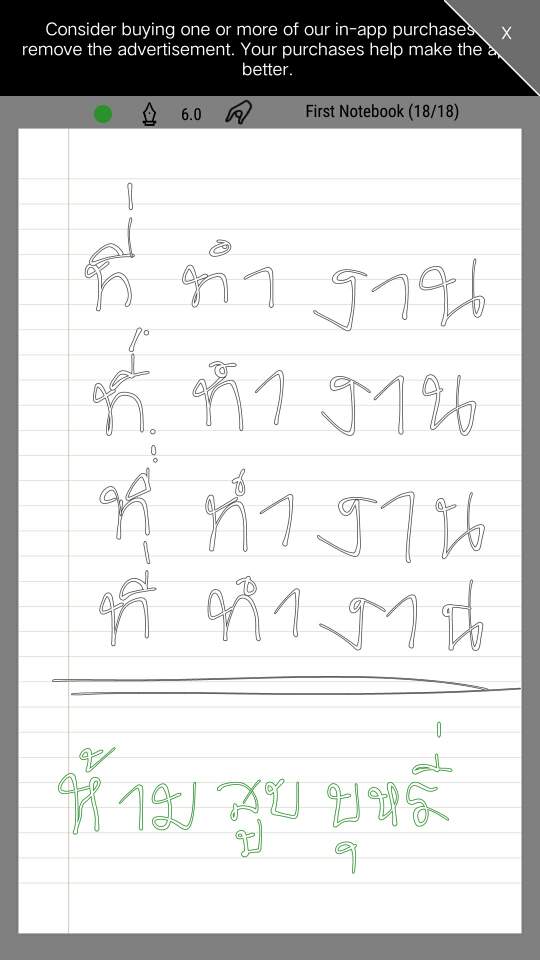 Consider buying one or more of our in-app purchases
remove the advertisement. Your purchases help make the
better.
X
6.0 First Notebook (18/18)
ที่ ทำ งาน
ที่ ทำ งาน
ที่ ทำ งาน
ที่ ทำ งาน
ห้าม สูบ บุหรี่